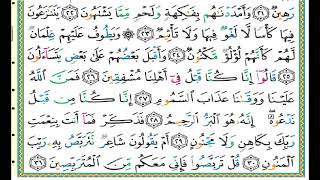 رَهِينٌ ﴿٢١﴾ وَأَمْدَدْنَٰهُم بِفَٰكِهَةٍ وَلَحْمٍ مِّمَّا يَشْتَهُونَ ﴿٢٢﴾ يَتَنَٰزَعُونَ
فِيهَا كَأْسًا لَّا لَغْوٌ فِيهَا وَلَا تَأْثِيمٌ ﴿٢٣﴾ ۞ وَيَطُوفُ عَلَيْهِمْ غِلْمَانٌ
لَّهُمْ كَأَنَّهُمْ لُؤْلُؤٌ مَّكْنُونٌ ﴿٢٤﴾ وَأَقْبَلَ بَعْضُهُمْ عَلَىٰ بَعْضٍ يَتَسَآءَلُونَ
﴿٢٥﴾ قَالُوٓا۟ إِنَّا كُنَّا قَبْلُ فِىٓ أَهْلِنَا مُشْفِقِينَ ﴿٢٦﴾ فَمَنَّ ٱللَّهُ
عَلَيْنَا وَوَقَىٰنَا عَذَابَ ٱلسَّمُومِ ﴿٢٧﴾ إِنَّا كُنَّا مِن قَبْلُ
نَدْعُوهُ ۖ إِنَّهُۥ هُوَ ٱلْبَرُّ ٱلرَّحِيمُ ﴿٢٨﴾ فَذَكِّرْ فَمَآ أَنتَ بِنِعْمَتِ
رَبِّكَ بِكَاهِنٍ وَلَا مَجْنُونٍ ﴿٢٩﴾ أَمْ يَقُولُونَ شَاعِرٌ نَّتَرَبَّصُ بِهِۦ رَيْبَ
ٱلْمَنُونِ ﴿٣٠﴾ قُلْ تَرَبَّصُوا۟ فَإِنِّى مَعَكُم مِّنَ ٱلْمُتَرَبِّصِينَ ﴿٣١﴾